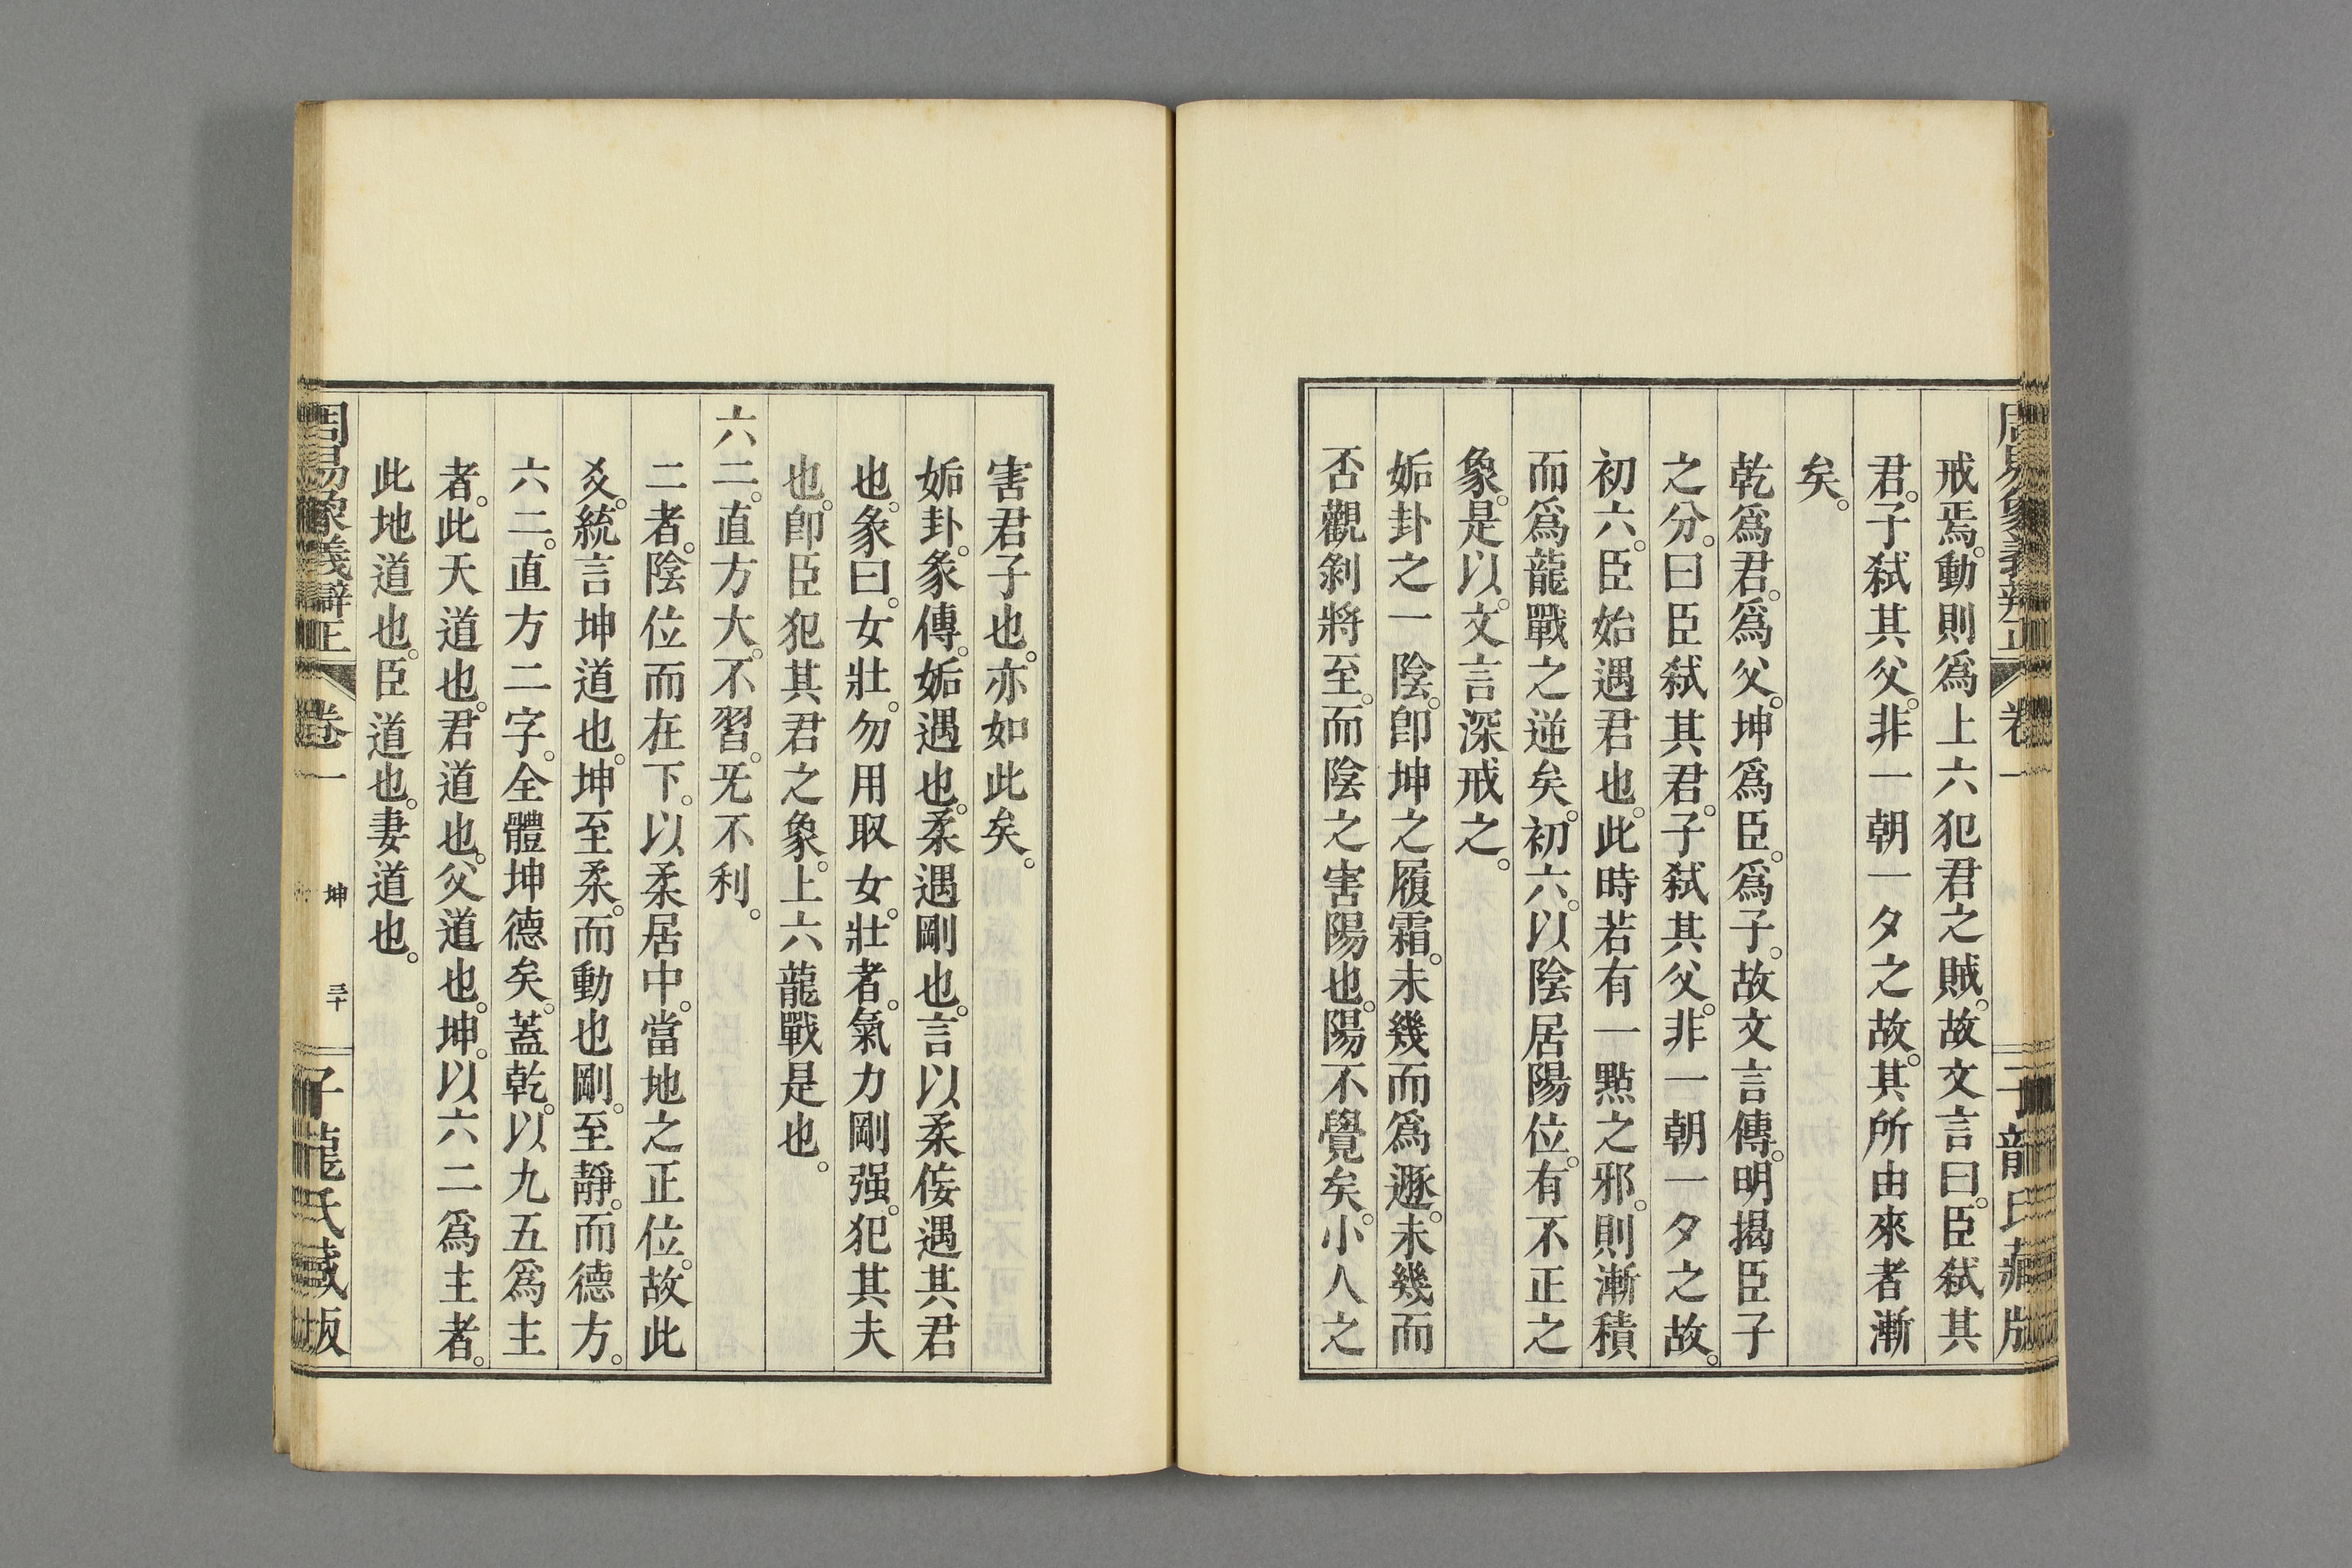 戒焉。動則爲上六犯君之賊。故文言曰。臣弑其
君。子弑其父。非一朝一夕之故。其所由來者漸
矣。
乾爲君。爲父。坤爲臣。爲子。故文言傳。明揭臣子
之分。曰臣弑其君。子弑其父。非一朝一夕之故。
初六。臣始遇君也。此時若有一點之邪。則漸積
而爲龍戰之逆矣。初六。以陰居陽位。有不正之
象。是以。文言深戒之。
姤卦之一陰。卽坤之履霜。未幾而爲遯。未幾而
否觀剝將至。而陰之害陽也。陽不覺矣。小人之
害君子也。亦如此矣。
姤卦。彖傳。姤遇也。柔遇剛也。言以柔侫遇其君
也。彖曰。女壯。勿用取女。壯者。氣力剛强。犯其夫
也。卽臣犯其君之象。上六龍戰是也。
六二。直方大。不習。无不利。
二者。陰位而在下。以柔居中。當地之正位。故此
爻。統言坤道也。坤至柔。而動也剛。至靜。而德方。
六二。直方二字。全體坤德矣。蓋乾。以九五爲主
者。此天道也。君道也。父道也。坤。以六二爲主者。
此地道也。臣道也。妻道也。
周易象義辯正 卷一 坤 三十 子龍氏藏版